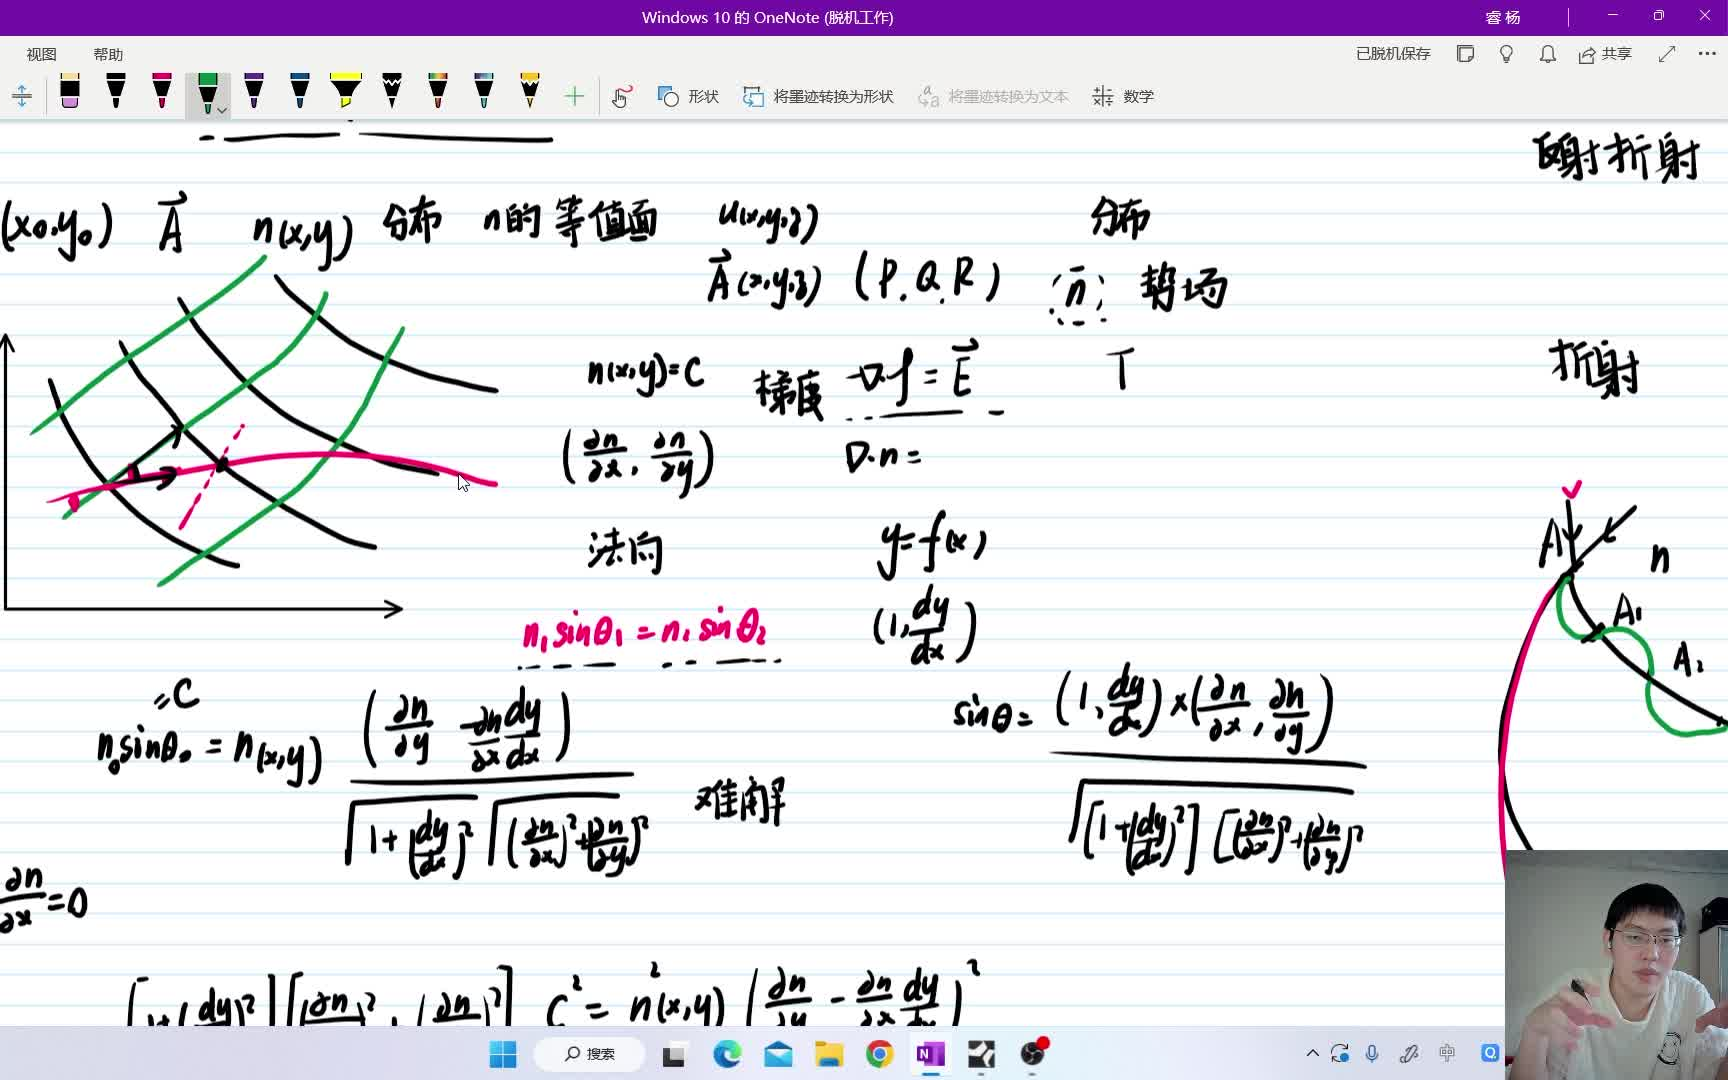 Windows 10 的 OneNote (脱机工作)
睿 杨
视图 帮助
已脱机保存 共享
形状 将墨迹转换为形状 将墨迹转换为文本 数学
射折射
(x₀,y₀) A⃗ n(x,y) 分布 n的等值面 u(x,y,z) 分布
A⃗(x,y,z) (P,Q,R) n 势场
n(x,y)=C 梯度 -∇·f=E⃗ T 折射
(∂n/∂x, ∂n/∂y) ∇·n=
法向 y=f(x) A n
n₁sinθ₁=n₁sinθ₂ (1,dy/dx) A₁
A₂
=C
n₀sinθ₀=n(x,y) (∂n/∂y -∂n/∂x dy/dx) / √1+(dy/dx)² √(∂n/∂x)²+(∂n/∂y)² 难解 sinθ= (1,dy/dx)×(∂n/∂x,∂n/∂y) / √[1+(dy/dx)²][(∂n/∂x)²+(∂n/∂y)²
∂n/∂x=0
[1+(dy/dx)²][(∂n/∂x)²+(∂n/∂y)²] C²=n²(x,y)(∂n/∂y-∂n/∂x dy/dx)²
搜索
中